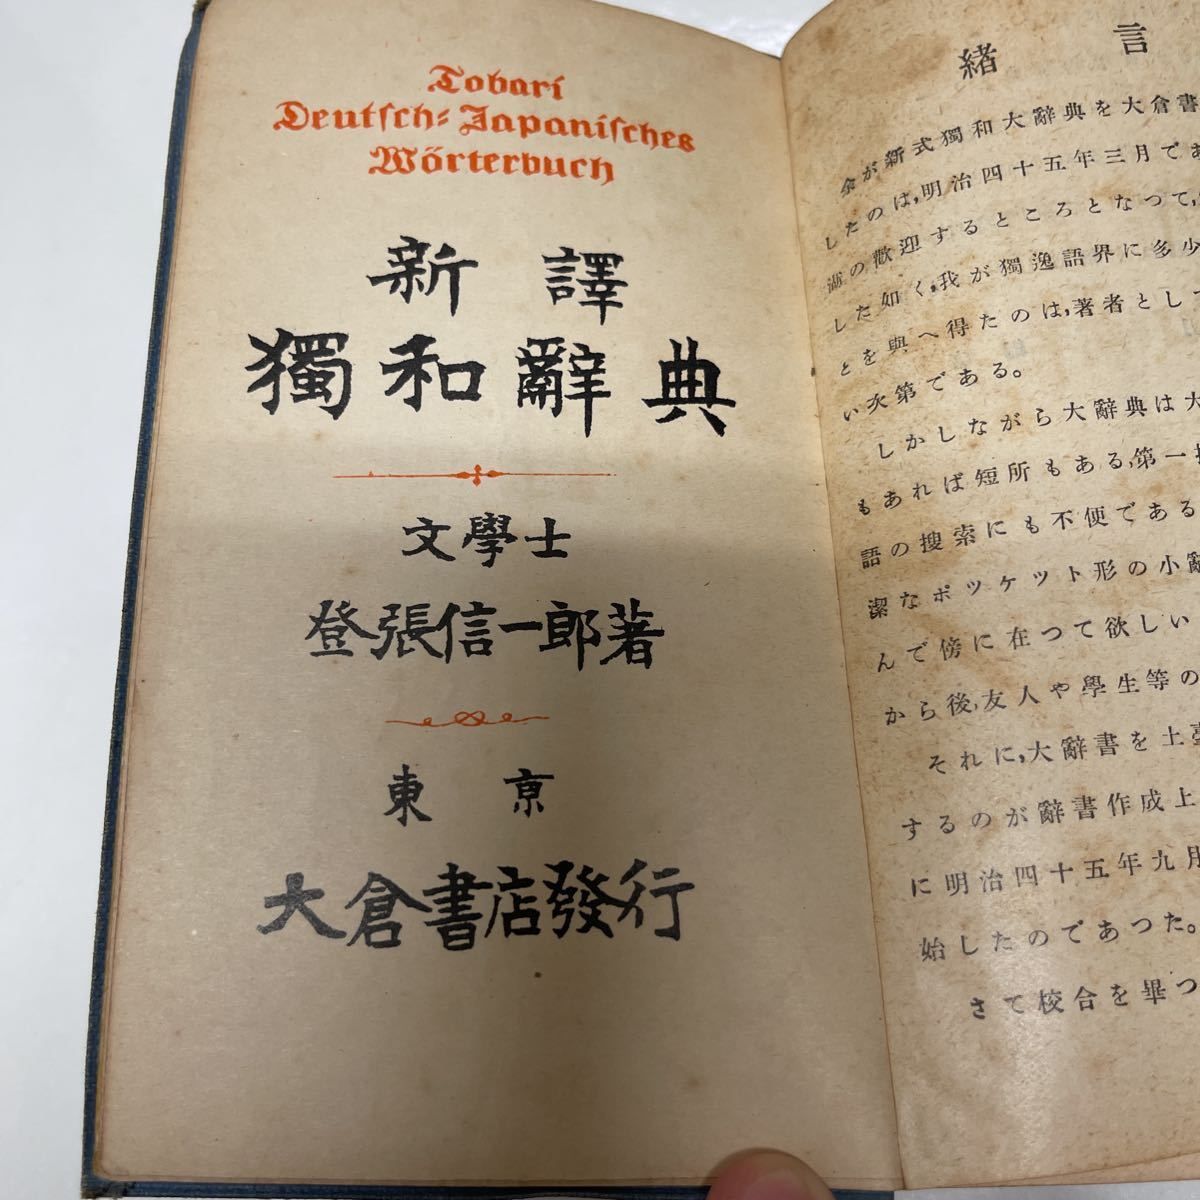 Tobari
Deutsch=Japanisches
Wörterbuch
新譯
獨和辭典
文學士
登張信一郎著
東京
大倉書店發行
緒言
余が新式獨和大辭典を大倉書
したのは,明治四十五年三月であ
湖の歡迎するところとなつて,
した如く,我が獨逸語界に多少
とを與へ得たのは,著者として
い次第である。
しかしながら大辭典は大
もあれば短所もある,第一
語の搜索にも不便である
潔なポツケツト形の小辭
んで傍に在つて欲しい
から後,友人や學生等の
それに,大辭書を土臺
するのが辭書作成上
に明治四十五年九月
始したのであつた。
さて校合を畢つ